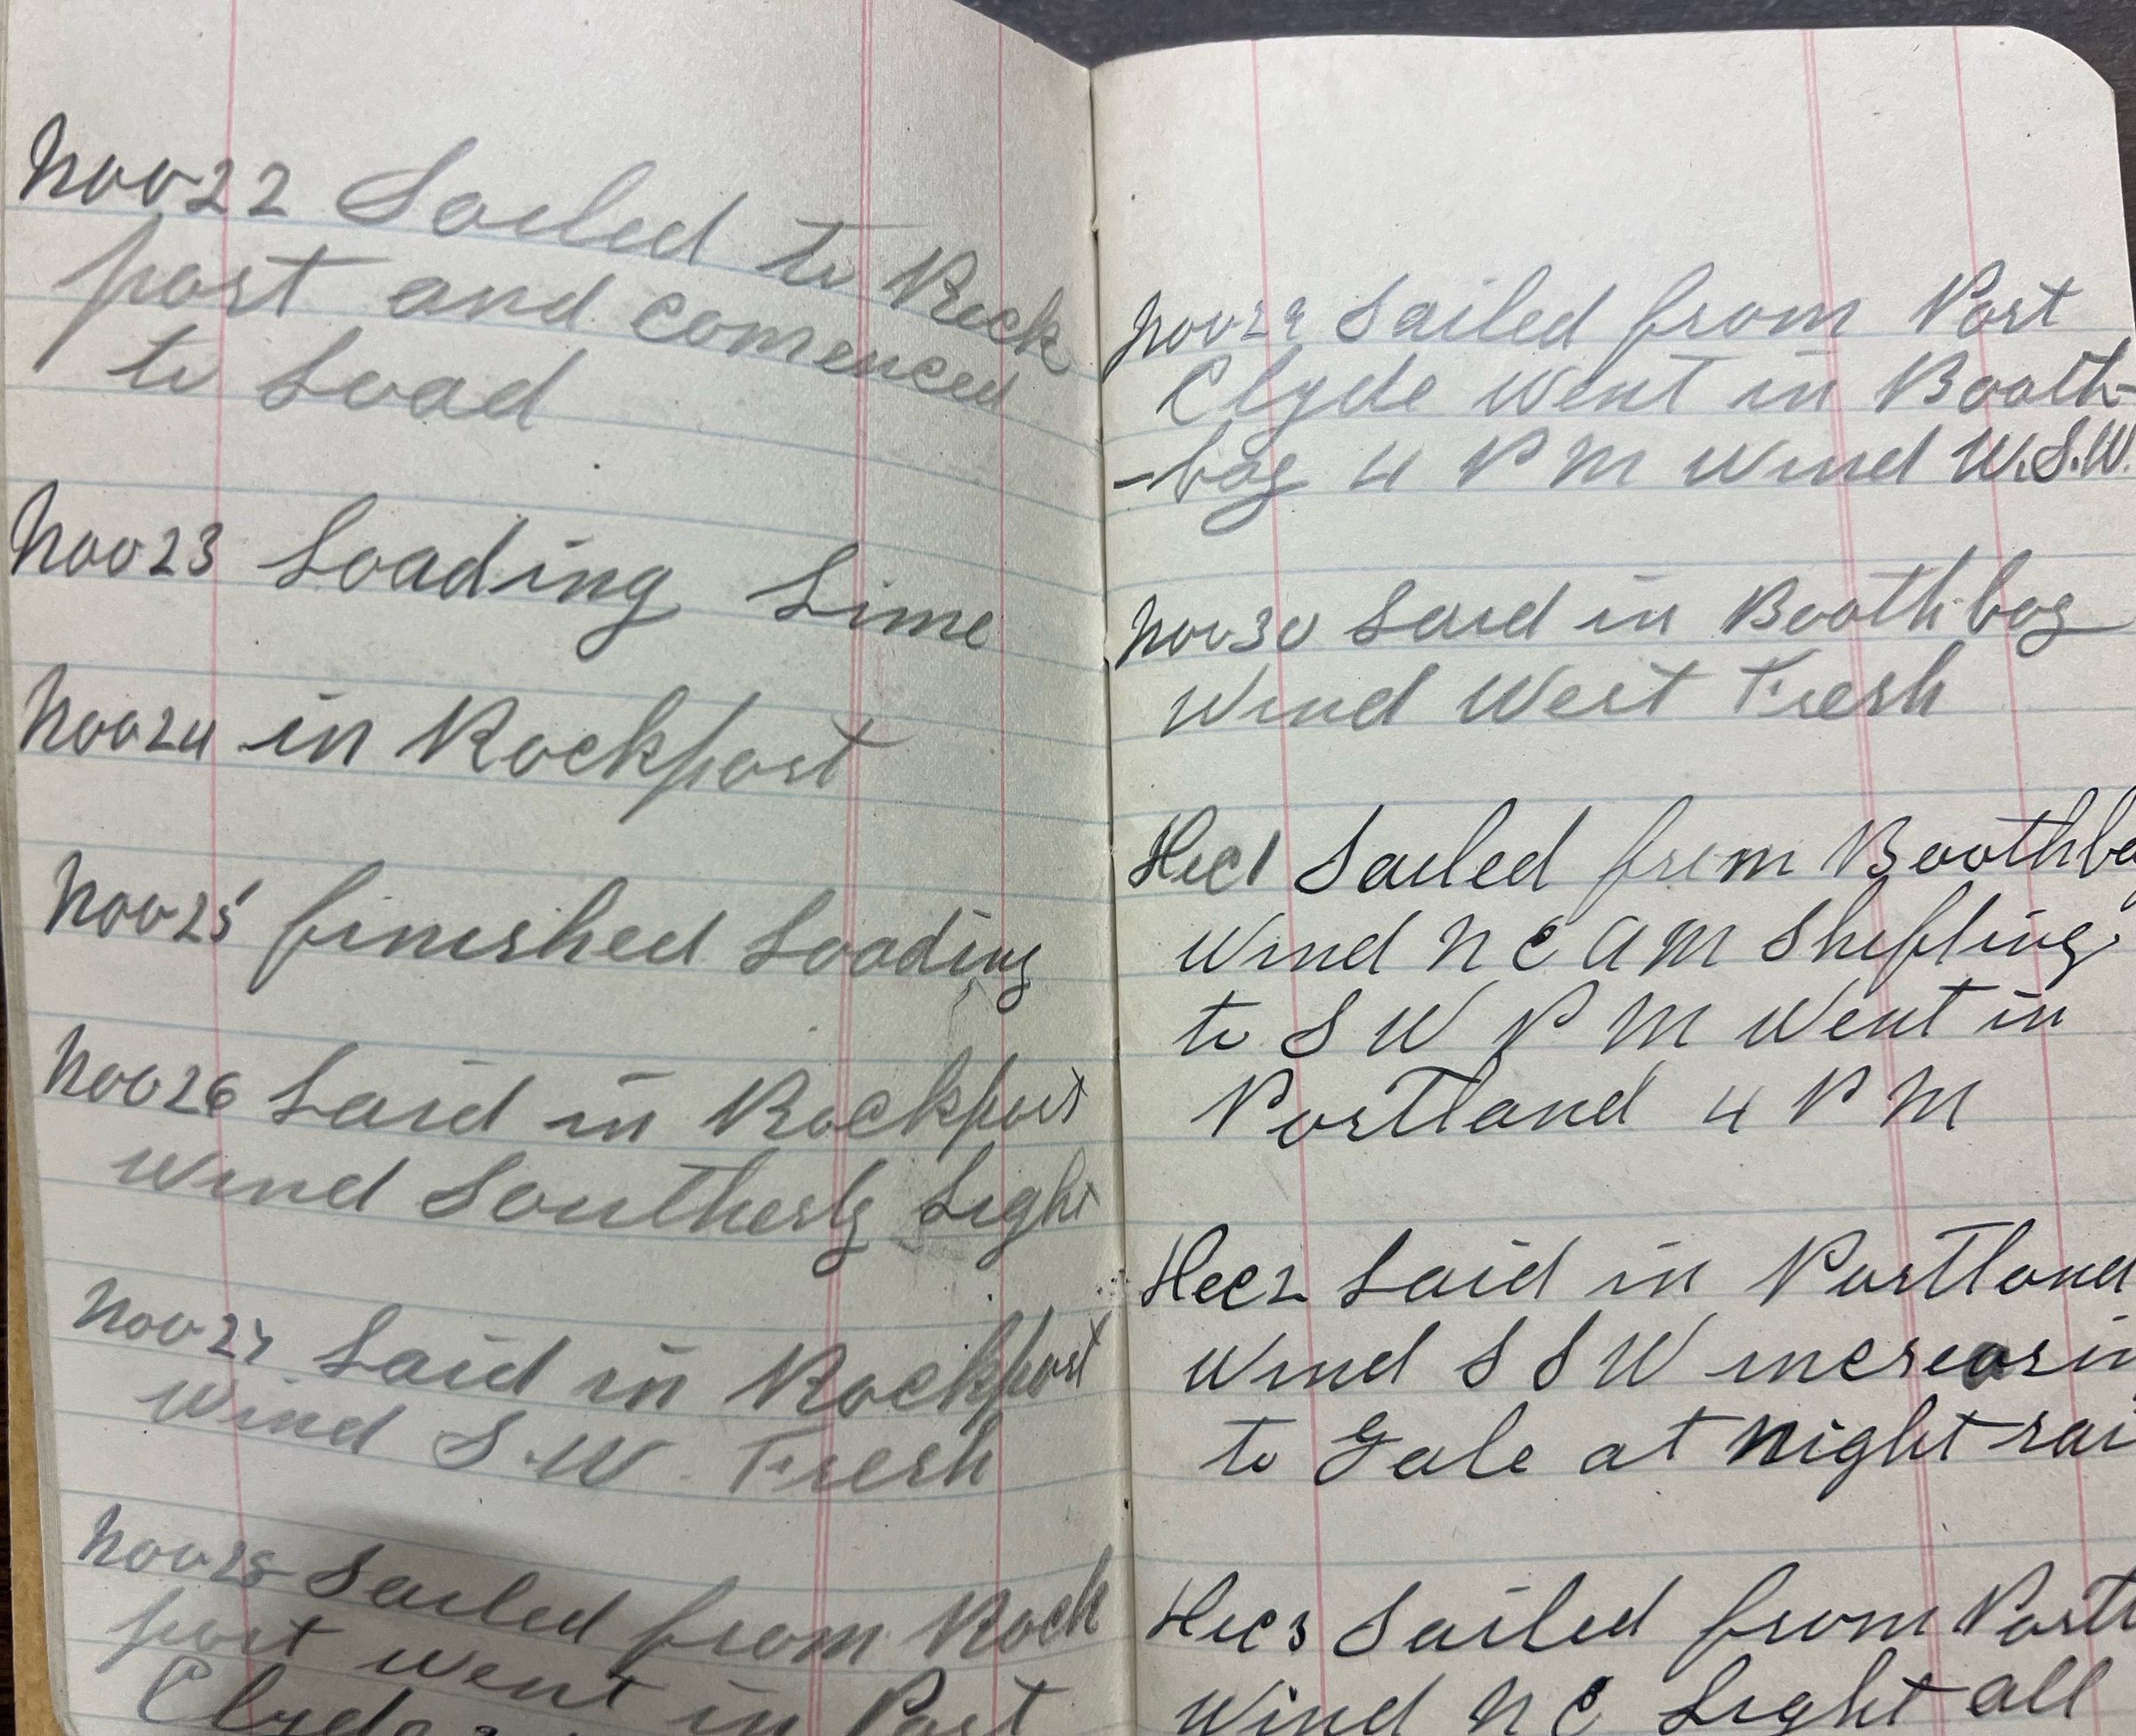 Nov 22 Sailed to Rock
port and comenced
to Load
Nov 23 Loading Lime
Nov 24 in Rockport
Nov 25 finished Loading
Nov 26 Laid in Rockport
Wind Southerly Light
Nov 27 Laid in Rockport
Wind S.W. Fresh
Nov 28 Sailed from Rock
port went in Port
Clyde
Nov 29 Sailed from Port
Clyde went in Booth-
-bay 4 P M Wind W.S.W.
Nov 30 Laid in Boothbay
Wind West Fresh
Dec 1 Sailed from Boothba
Wind N E A M Shifting
to S W P M Went in
Portland 4 P M
Dec 2 Laid in Portland
Wind S S W increasin
to Gale at Night rai
Dec 3 Sailed from Portl
Wind N E Light all